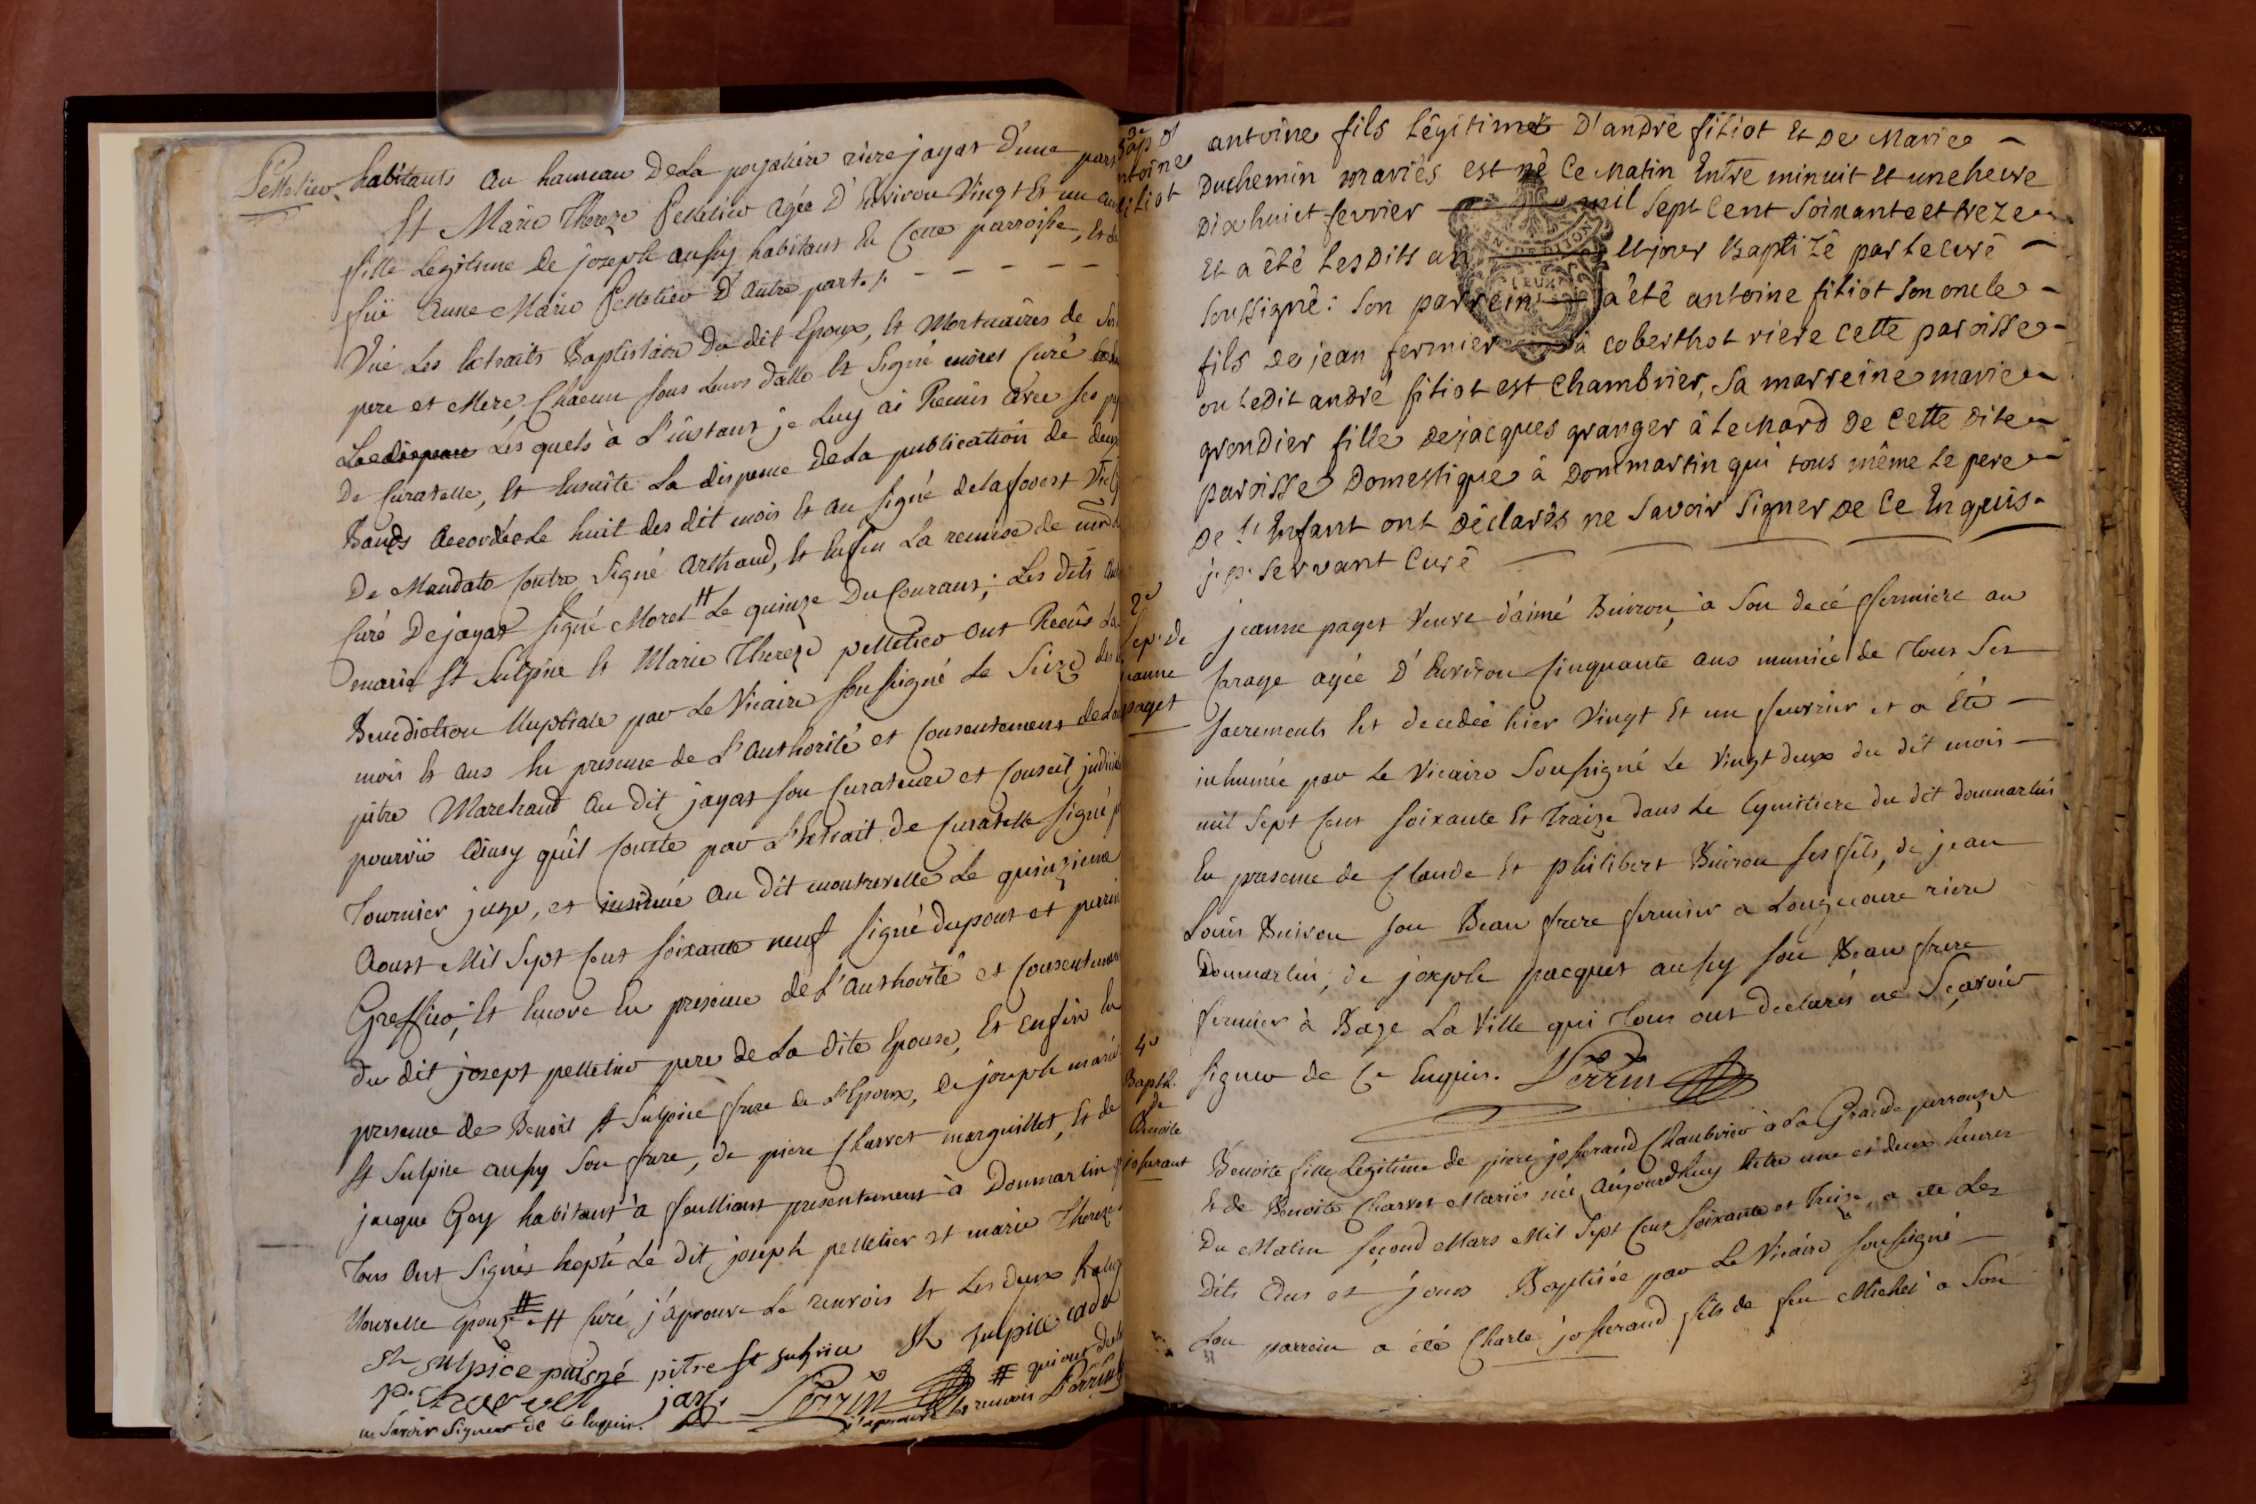 Pelletier
habitants au hameau De La poyatiere riere jayat D'une part
Et Marie Thereze Pelletier agée D'Environ Vingt Et un ans
fille Legitime De joseph aussy habitant En Cette parroisse, Et de
füe Anne Marie Pelletier D'autre part./.
Vüe Les Extraits Baptistaire Du dit Epoux, Et Mortuaires de ses
pere et Mere, Chacun sous Leurs datte Et Signé moret Curé
Les quels à L'instant je Luy ai Remis avec ses
De Curatelle, Et Ensuite La dispense De La publication de deux
Bands accordée Le huit des dit mois Et an signé delaforest Vic. g.
De Mandato Contre Signé Arthaud, Et Enfin La remise de
Curé De jayat Signé Moret # Le quinze Du Courant; Les dits
marie St Sulpice Et Marie Thereze pelletier ont Reçus La
Benediction Nuptiale par Le Vicaire Soussigné Le Seize des
mois Et ans En presence de L'Authorité et Consentement de
pitre Marchand au dit jayat son Curateure et Conseil judiciaire
pourvü ainsy qu'il Conste par L'Extrait de Curatelle signé
Tournier juge, et insinué au dit montrevelle Le quinzieme
Aoust Mil Sept Cent soixante neuf Signé Dupont et perrin
Greffier; Et Encore En presence de L'Authorité et Consentement
du dit josept pelletier pere de La dite Epouse, Et Enfin En
presence de Benoit St Sulpice frere de L'Epoux, de joseph marie
St Sulpice aussy son frere, de piere Charvet marguillet, Et de
jacque Goy habitant à foulliout presentement à Donmartin
Tous ont Signés Exepté Le dit joseph pelletier et marie Thereze
Nouvelle Epouze # # Curé j'aprouve Le renvois Et Les deux
St Sulpice puisné pitre St Sulpice St Sulpice cadet
p. Charvet jaq. Perrin # qui ont de
ne Savoir Signer de Ce Enquis. j'aprouve Le renvois Perrin
3e
Bap d'
antoine
fitiot
antoine fils Légitime D'andré fitiot Et De Marie
Duchemin mariés est né Ce Matin Entre minuit et une heure
Dix huict fevrier mil Sept Cent Soixante et treze
Et a été lesdits an et jour Baptizé par le Curé
Soussigné: Son parrein a été antoine fitiot Son oncle
fils de jean fermier à coberthot riere Cette paroisse
ou ledit andré fitiot est Chambrier, Sa marreine marie
grondier fille de jacques granger à lechard De Cette Dite
paroisse Domestique à Dommartin qui tous même le pere
De l'Enfant ont Déclarés ne Savoir Signer De Ce Enquis.
j. p. Servant Curé
2e
Sep. De
jeanne
paget
jeanne paget Veuve d'aimé Buiron, à Son decé fermiere au
farage agée D'Environ Cinquante ans muniée de Tous Ses
Sacrements Est decedée hier Vingt Et un fevrier et a Été
inhumée par Le Vicaire Soussigné Le Vingt deux du dit mois
mil Sept Cent Soixante Et Traize dans Le Cymitiere du dit donmartin
En presence de Claude Et philibert Buiron ses fils, de jean
Louis Buiron son Beau frere fermier a Longecour riere
Donmartin, de joseph pacquet aussy son Beau frere
fermier à Bage La Ville qui Tous ont declarés ne Sçavoir
Signer de Ce Enquis. Perrin
4e
Baptk.
de
Benoite
josserant
Benoite fille Legitime de piere josserand Chambrier à La Grande perrouze
Et de Benoite Charvet Mariés née Aujourdhuy Entre une et deux heures
Du Matin Second Mars Mil Sept Cent Soixante et Treize, a été Les
Dits Ans et jours Baptisée par Le Vicaire Soussigné
Son parrein a été Charle josserand fils de feu Michel a Son